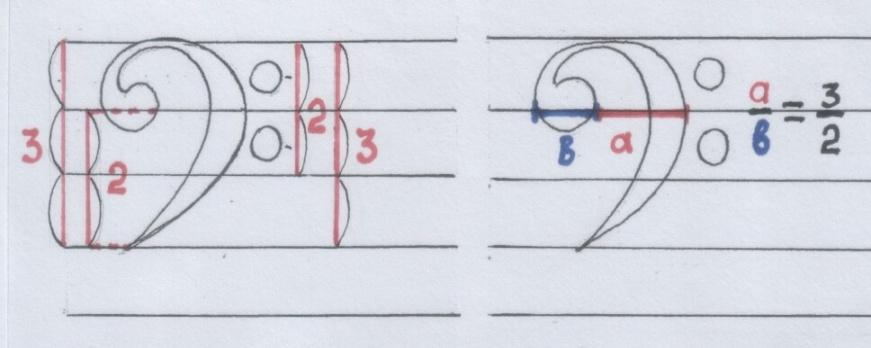 3
2
2
3
в
a
a/в = 3/2